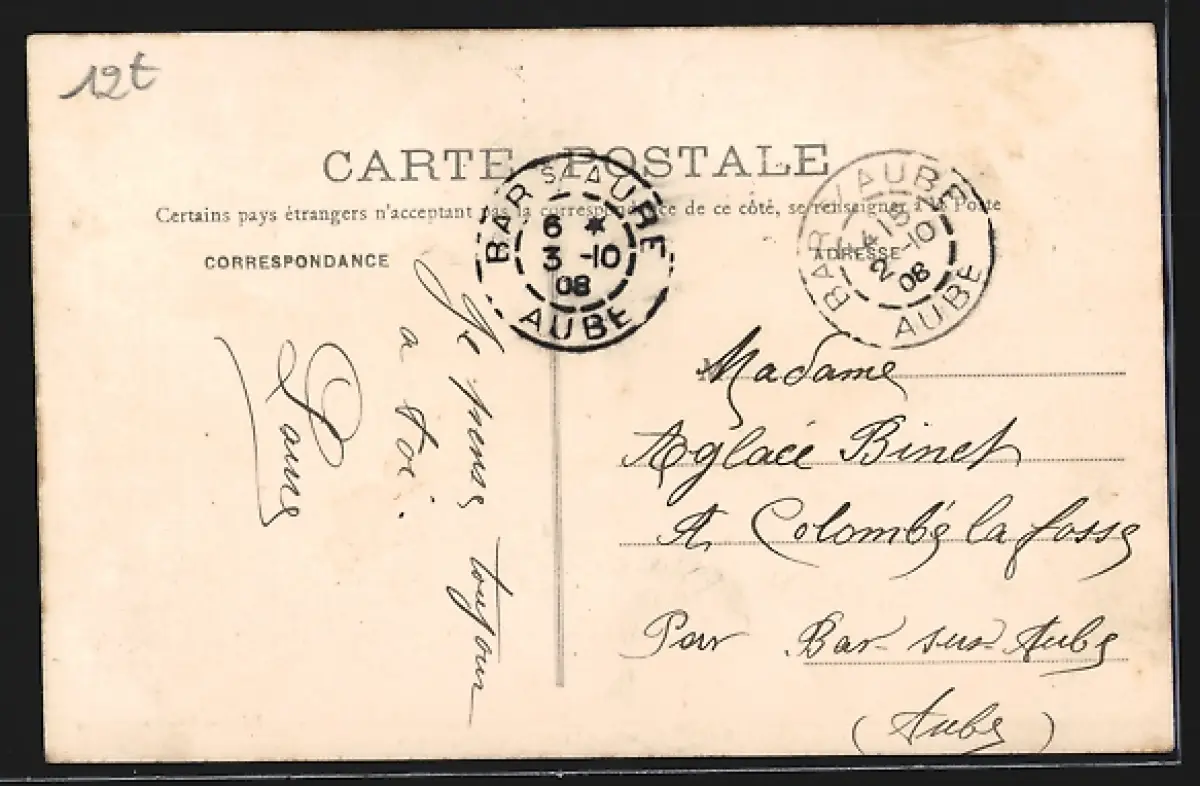 12t
CARTE POSTALE
Certains pays étrangers n'acceptant pas la correspondance de ce côté, se renseigner à la Poste
CORRESPONDANCE
ADRESSE
BAR S/ AUBE
6 *
3 -10
08
AUBE
BAR S/ AUBE
15
2 -10
08
AUBE
Je pense toujour
a toi.
Madame
Aglaée Binet
A Colombé la fosse
Par Bar-sur-Aube
(Aube)